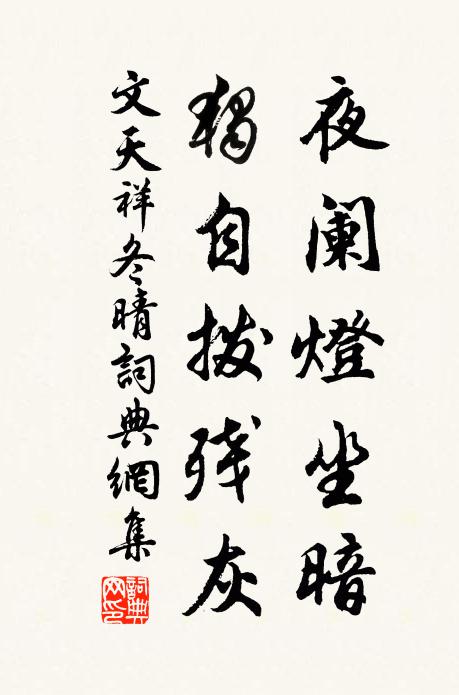 夜阑燈坐暗
獨自拨残灰
文天祥冬晴詞典網集
詞典网印